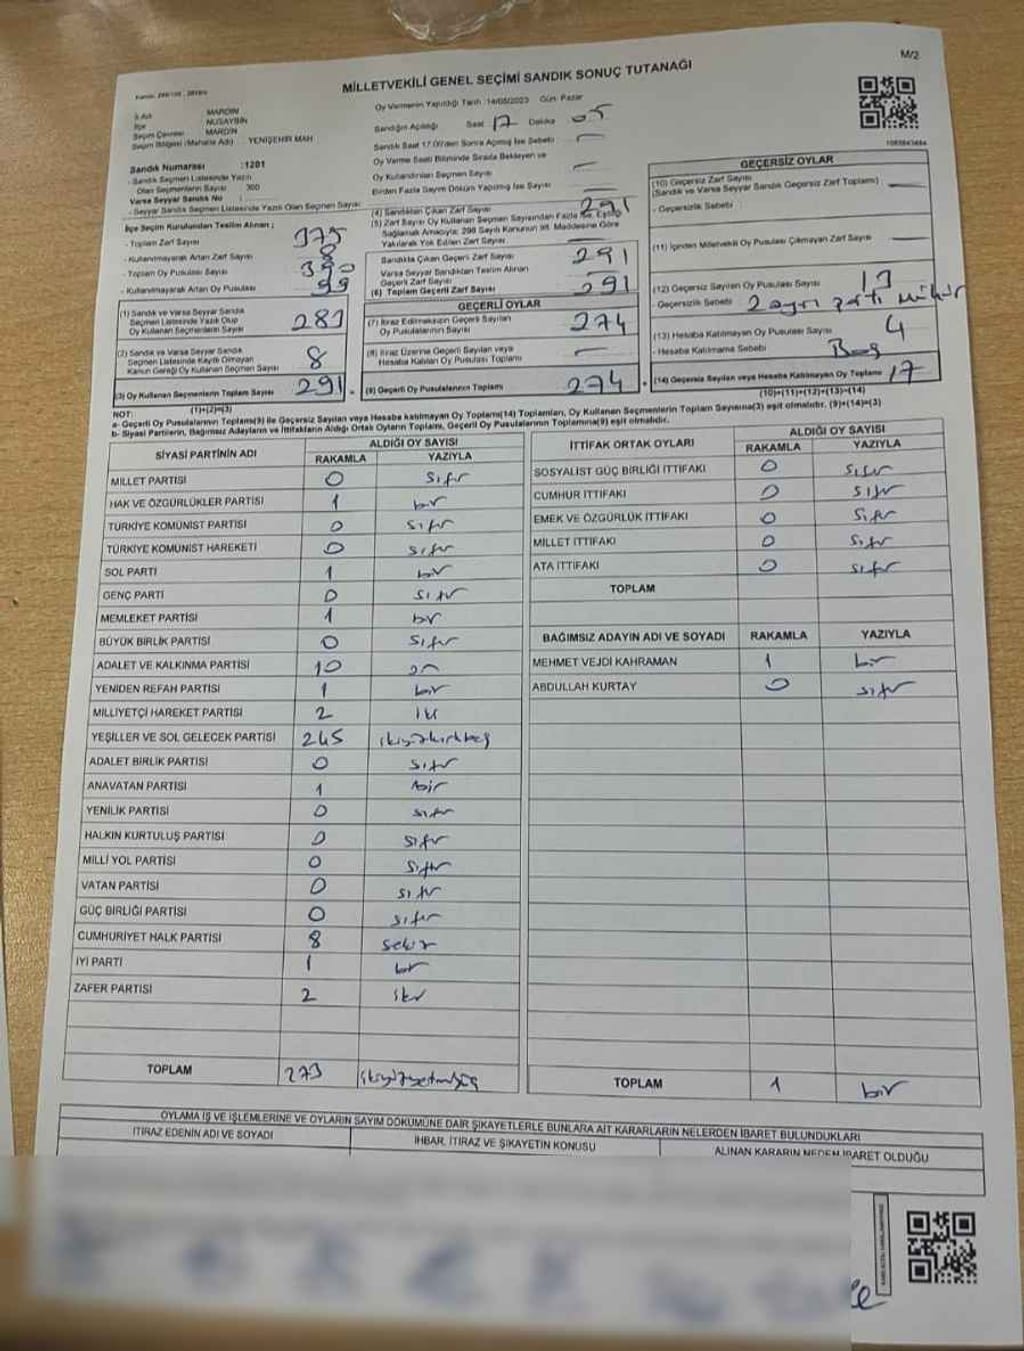 M/2
MİLLETVEKİLİ GENEL SEÇİMİ SANDIK SONUÇ TUTANAĞI
İl Adı MARDİN
İlçe NUSAYBİN
Seçim Çevresi MARDİN
Seçim Bölgesi (Mahalle Adı) YENİŞEHİR MAH
Sandık Numarası :1201
- Sandık Seçmen Listesinde Yazılı
Olan Seçmenlerin Sayısı 360
Varsa Seyyar Sandık No :
- Seyyar Sandık Seçmen Listesinde Yazılı Olan Seçmen Sayısı
İlçe Seçim Kurulundan Teslim Alınan ;
- Toplam Zarf Sayısı 375
- Kullanılmayarak Artan Zarf Sayısı
- Toplam Oy Pusulası Sayısı 390
- Kullanılmayarak Artan Oy Pusulası 99
(1) Sandık ve Varsa Seyyar Sandık
Seçmen Listesinde Yazılı Olup
Oy Kullanan Seçmenlerin Sayısı 283
(2) Sandık ve Varsa Seyyar Sandık
Seçmen Listesinde Kayıtlı Olmayan
Kanun Gereği Oy Kullanan Seçmen Sayısı 8
(3) Oy Kullanan Seçmenlerin Toplam Sayısı 291
(1)+(2)=(3)
Oy Vermenin Yapıldığı Tarih :14/05/2023 Gün: Pazar
Sandığın Açıldığı Saat 17 Dakika 05
Sandık Saat 17.00'den Sonra Açılmış İse Sebebi
Oy Verme Saati Bitiminde Sırada Bekleyen ve
Oy Kullandırılan Seçmen Sayısı
Birden Fazla Sayım Döküm Yapılmış İse Sayısı
(4) Sandıktan Çıkan Zarf Sayısı 291
(5) Zarf Sayısı Oy Kullanan Seçmen Sayısından Fazla İse, Eşitliği
Sağlamak Amacıyla; 298 Sayılı Kanunun 98. Maddesine Göre
Yakılarak Yok Edilen Zarf Sayısı
Sandıkta Çıkan Geçerli Zarf Sayısı 291
Varsa Seyyar Sandıktan Teslim Alınan
Geçerli Zarf Sayısı
(6) Toplam Geçerli Zarf Sayısı 291
GEÇERLİ OYLAR
(7) İtiraz Edilmeksizin Geçerli Sayılan
Oy Pusulalarının Sayısı 274
(8) İtiraz Üzerine Geçerli Sayılan veya
Hesaba Katılan Oy Pusulası Toplamı
(9) Geçerli Oy Pusulalarının Toplamı 274
GEÇERSİZ OYLAR
(10) Geçersiz Zarf Sayısı
(Sandık ve Varsa Seyyar Sandık Geçersiz Zarf Toplamı)
- Geçersizlik Sebebi
(11) İçinden Milletvekili Oy Pusulası Çıkmayan Zarf Sayısı
(12) Geçersiz Sayılan Oy Pusulası Sayısı 13
- Geçersizlik Sebebi 2 ayrı parti mühür
(13) Hesaba Katılmayan Oy Pusulası Sayısı 4
- Hesaba Katılmama Sebebi Boş
(14) Geçersiz Sayılan veya Hesaba Katılmayan Oy Toplamı 17
(10)+(11)+(12)+(13)=(14)
NOT:
a- Geçerli Oy Pusulalarının Toplamı(9) ile Geçersiz Sayılan veya Hesaba katılmayan Oy Toplamı(14) Toplamları, Oy Kullanan Seçmenlerin Toplam Sayısına(3) eşit olmalıdır. (9)+(14)=(3)
b- Siyasi Partilerin, Bağımsız Adayların ve İttifakların Aldığı Ortak Oyların Toplamı, Geçerli Oy Pusulalarının Toplamına(9) eşit olmalıdır.
SİYASİ PARTİNİN ADI ALDIĞI OY SAYISI
RAKAMLA YAZIYLA
MİLLET PARTİSİ 0 sıfır
HAK VE ÖZGÜRLÜKLER PARTİSİ 1 bir
TÜRKİYE KOMÜNİST PARTİSİ 0 sıfır
TÜRKİYE KOMÜNİST HAREKETİ 0 sıfır
SOL PARTİ 1 bir
GENÇ PARTİ 0 sıfır
MEMLEKET PARTİSİ 1 bir
BÜYÜK BİRLİK PARTİSİ 0 sıfır
ADALET VE KALKINMA PARTİSİ 10 on
YENİDEN REFAH PARTİSİ 1 bir
MİLLİYETÇİ HAREKET PARTİSİ 2 iki
YEŞİLLER VE SOL GELECEK PARTİSİ 245 ikiyüzkırkbeş
ADALET BİRLİK PARTİSİ 0 sıfır
ANAVATAN PARTİSİ 1 bir
YENİLİK PARTİSİ 0 sıfır
HALKIN KURTULUŞ PARTİSİ 0 sıfır
MİLLİ YOL PARTİSİ 0 sıfır
VATAN PARTİSİ 0 sıfır
GÜÇ BİRLİĞİ PARTİSİ 0 sıfır
CUMHURİYET HALK PARTİSİ 8 sekiz
İYİ PARTİ 1 bir
ZAFER PARTİSİ 2 iki
TOPLAM 273 ikiyüzyetmişüç
İTTİFAK ORTAK OYLARI ALDIĞI OY SAYISI
RAKAMLA YAZIYLA
SOSYALİST GÜÇ BİRLİĞİ İTTİFAKI 0 sıfır
CUMHUR İTTİFAKI 0 sıfır
EMEK VE ÖZGÜRLÜK İTTİFAKI 0 sıfır
MİLLET İTTİFAKI 0 sıfır
ATA İTTİFAKI 0 sıfır
TOPLAM
BAĞIMSIZ ADAYIN ADI VE SOYADI RAKAMLA YAZIYLA
MEHMET VEJDİ KAHRAMAN 1 bir
ABDULLAH KURTAY 0 sıfır
TOPLAM 1 bir
OYLAMA İŞ VE İŞLEMLERİNE VE OYLARIN SAYIM DÖKÜMÜNE DAİR ŞİKAYETLERLE BUNLARA AİT KARARLARIN NELERDEN İBARET BULUNDUKLARI
İTİRAZ EDENİN ADI VE SOYADI İHBAR, İTİRAZ VE ŞİKAYETİN KONUSU ALINAN KARARIN NEDEN İBARET OLDUĞU